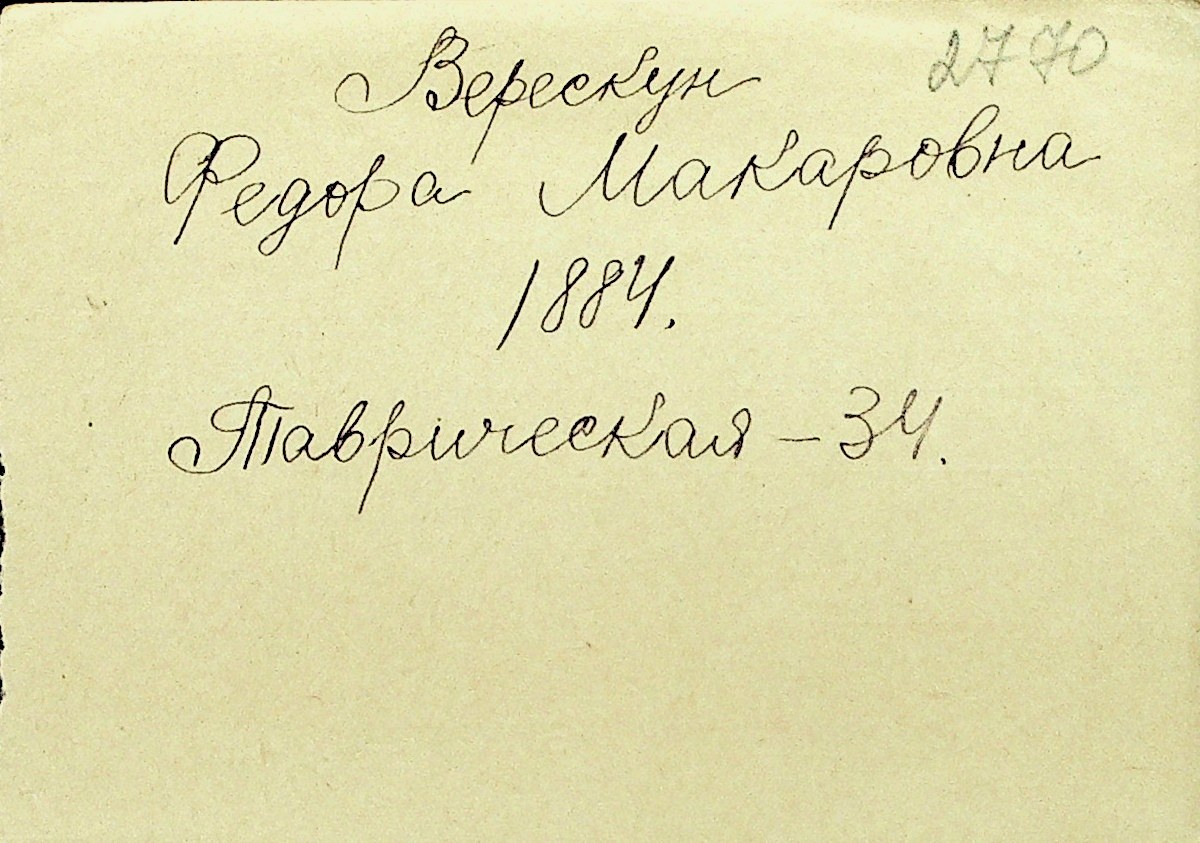 2770
Верескун
Федора Макаровна
1884.
Таврическая - 34.